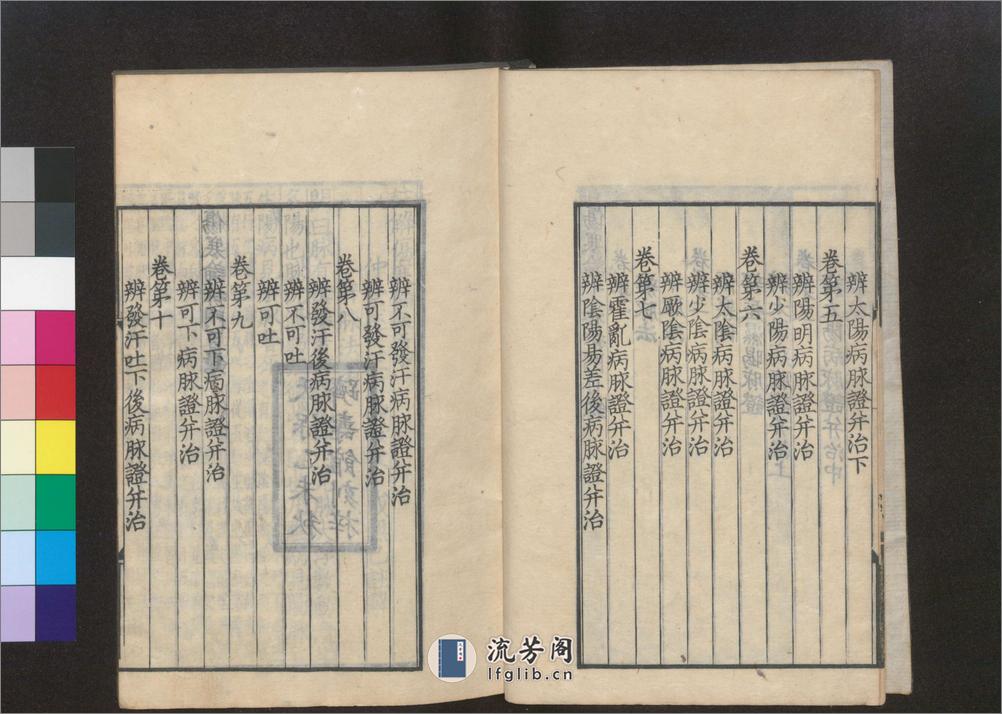 辨太陽病脉證并治下
卷第五
辨陽明病脉證并治
辨少陽病脉證并治
卷第六
辨太陰病脉證并治
辨少陰病脉證并治
辨厥陰病脉證并治
卷第七
辨霍亂病脉證并治
辨陰陽易差後病脉證并治
辨不可發汗病脉證并治
辨可發汗病脉證并治
卷第八
辨發汗後病脉證并治
辨不可吐
辨可吐
卷第九
辨不可下病脉證并治
辨可下病脉證并治
卷第十
辨發汗吐下後病脉證并治
流芳阁
lfglib.cn